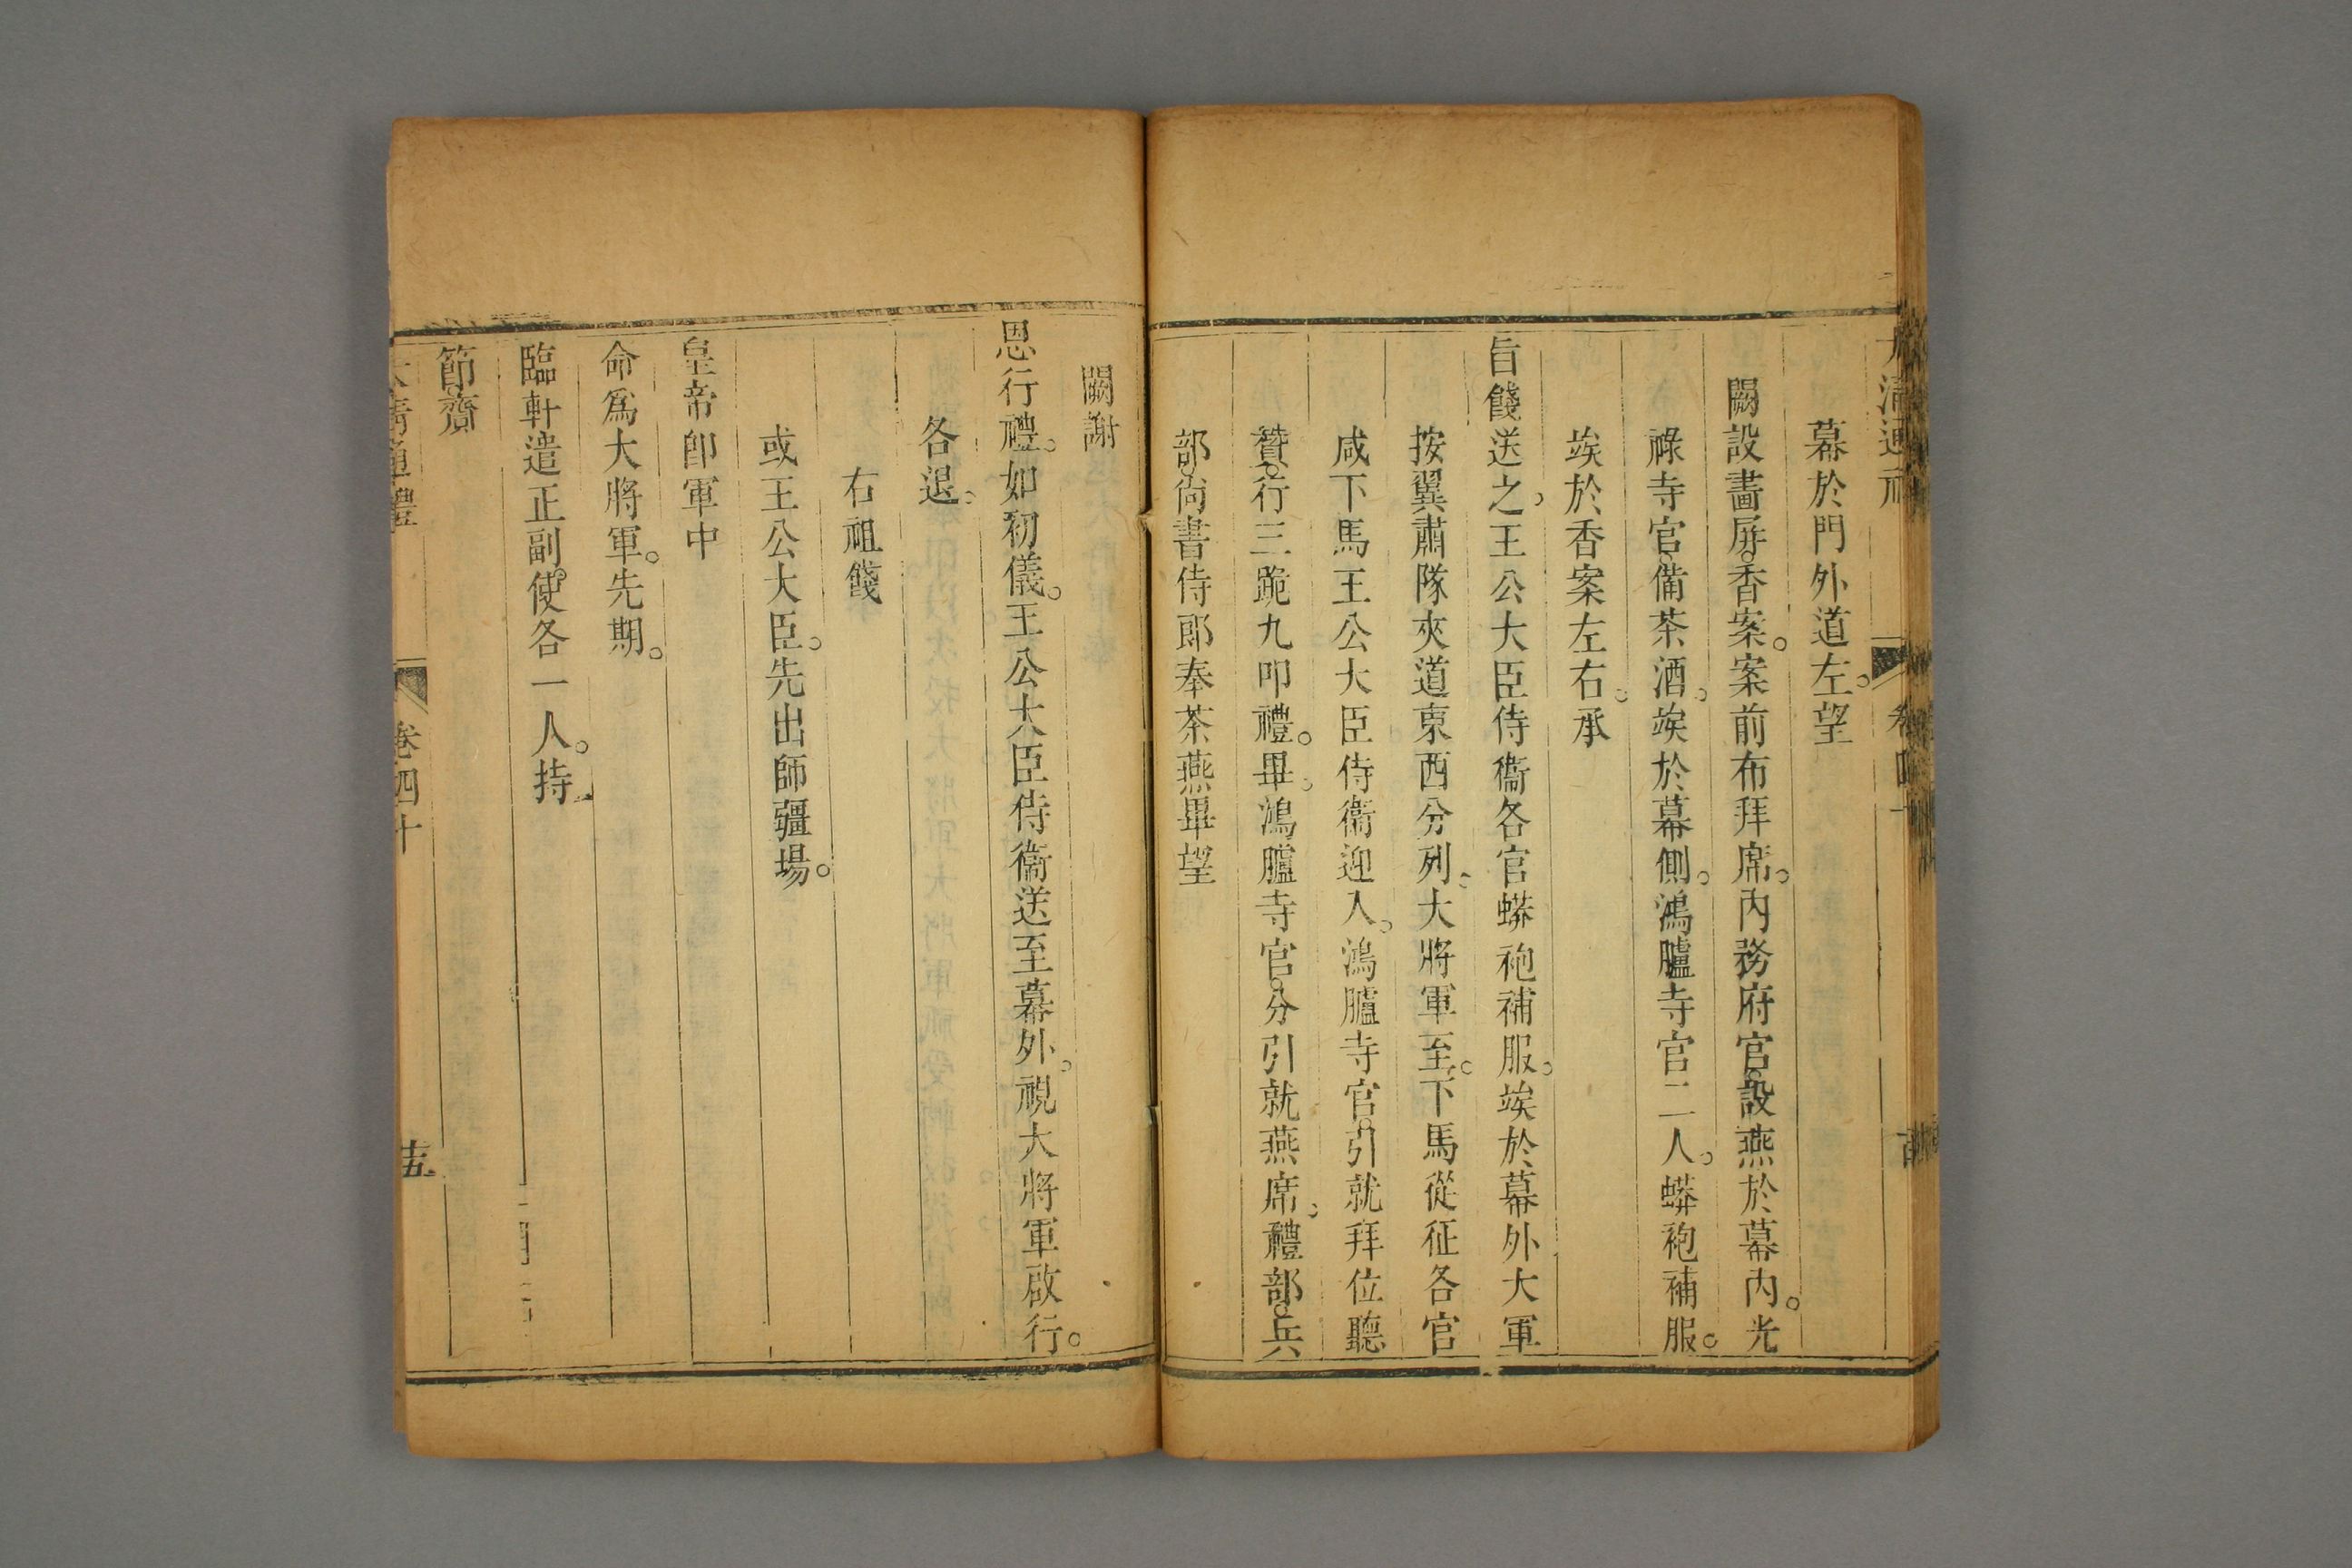 幕於門外道左。望
闕設畫屏。香案。案前布拜席。內務府官。設燕於幕內。光
祿寺官。備茶酒。竢於幕側。鴻臚寺官二人。蟒袍補服。
竢於香案左右。承
旨餞送之。王公大臣侍衞各官蟒袍補服。竢於幕外大軍
按翼肅隊夾道東西分列。大將軍至。下馬從征各官
咸下馬王公大臣侍衞迎入。鴻臚寺官。引就拜位聽
贊。行三跪九叩禮。畢。鴻臚寺官。分引就燕席。禮部。兵
部。尙書侍郎奉茶燕畢望
闕謝
恩行禮。如初儀。王公大臣侍衞送至幕外。視大將軍啟行。
各退。
右祖餞
或王公大臣。先出師疆場。
皇帝卽軍中
命爲大將軍。先期。
臨軒遣正副。使各一人。持
節。齎
大清通禮 卷四十 十五